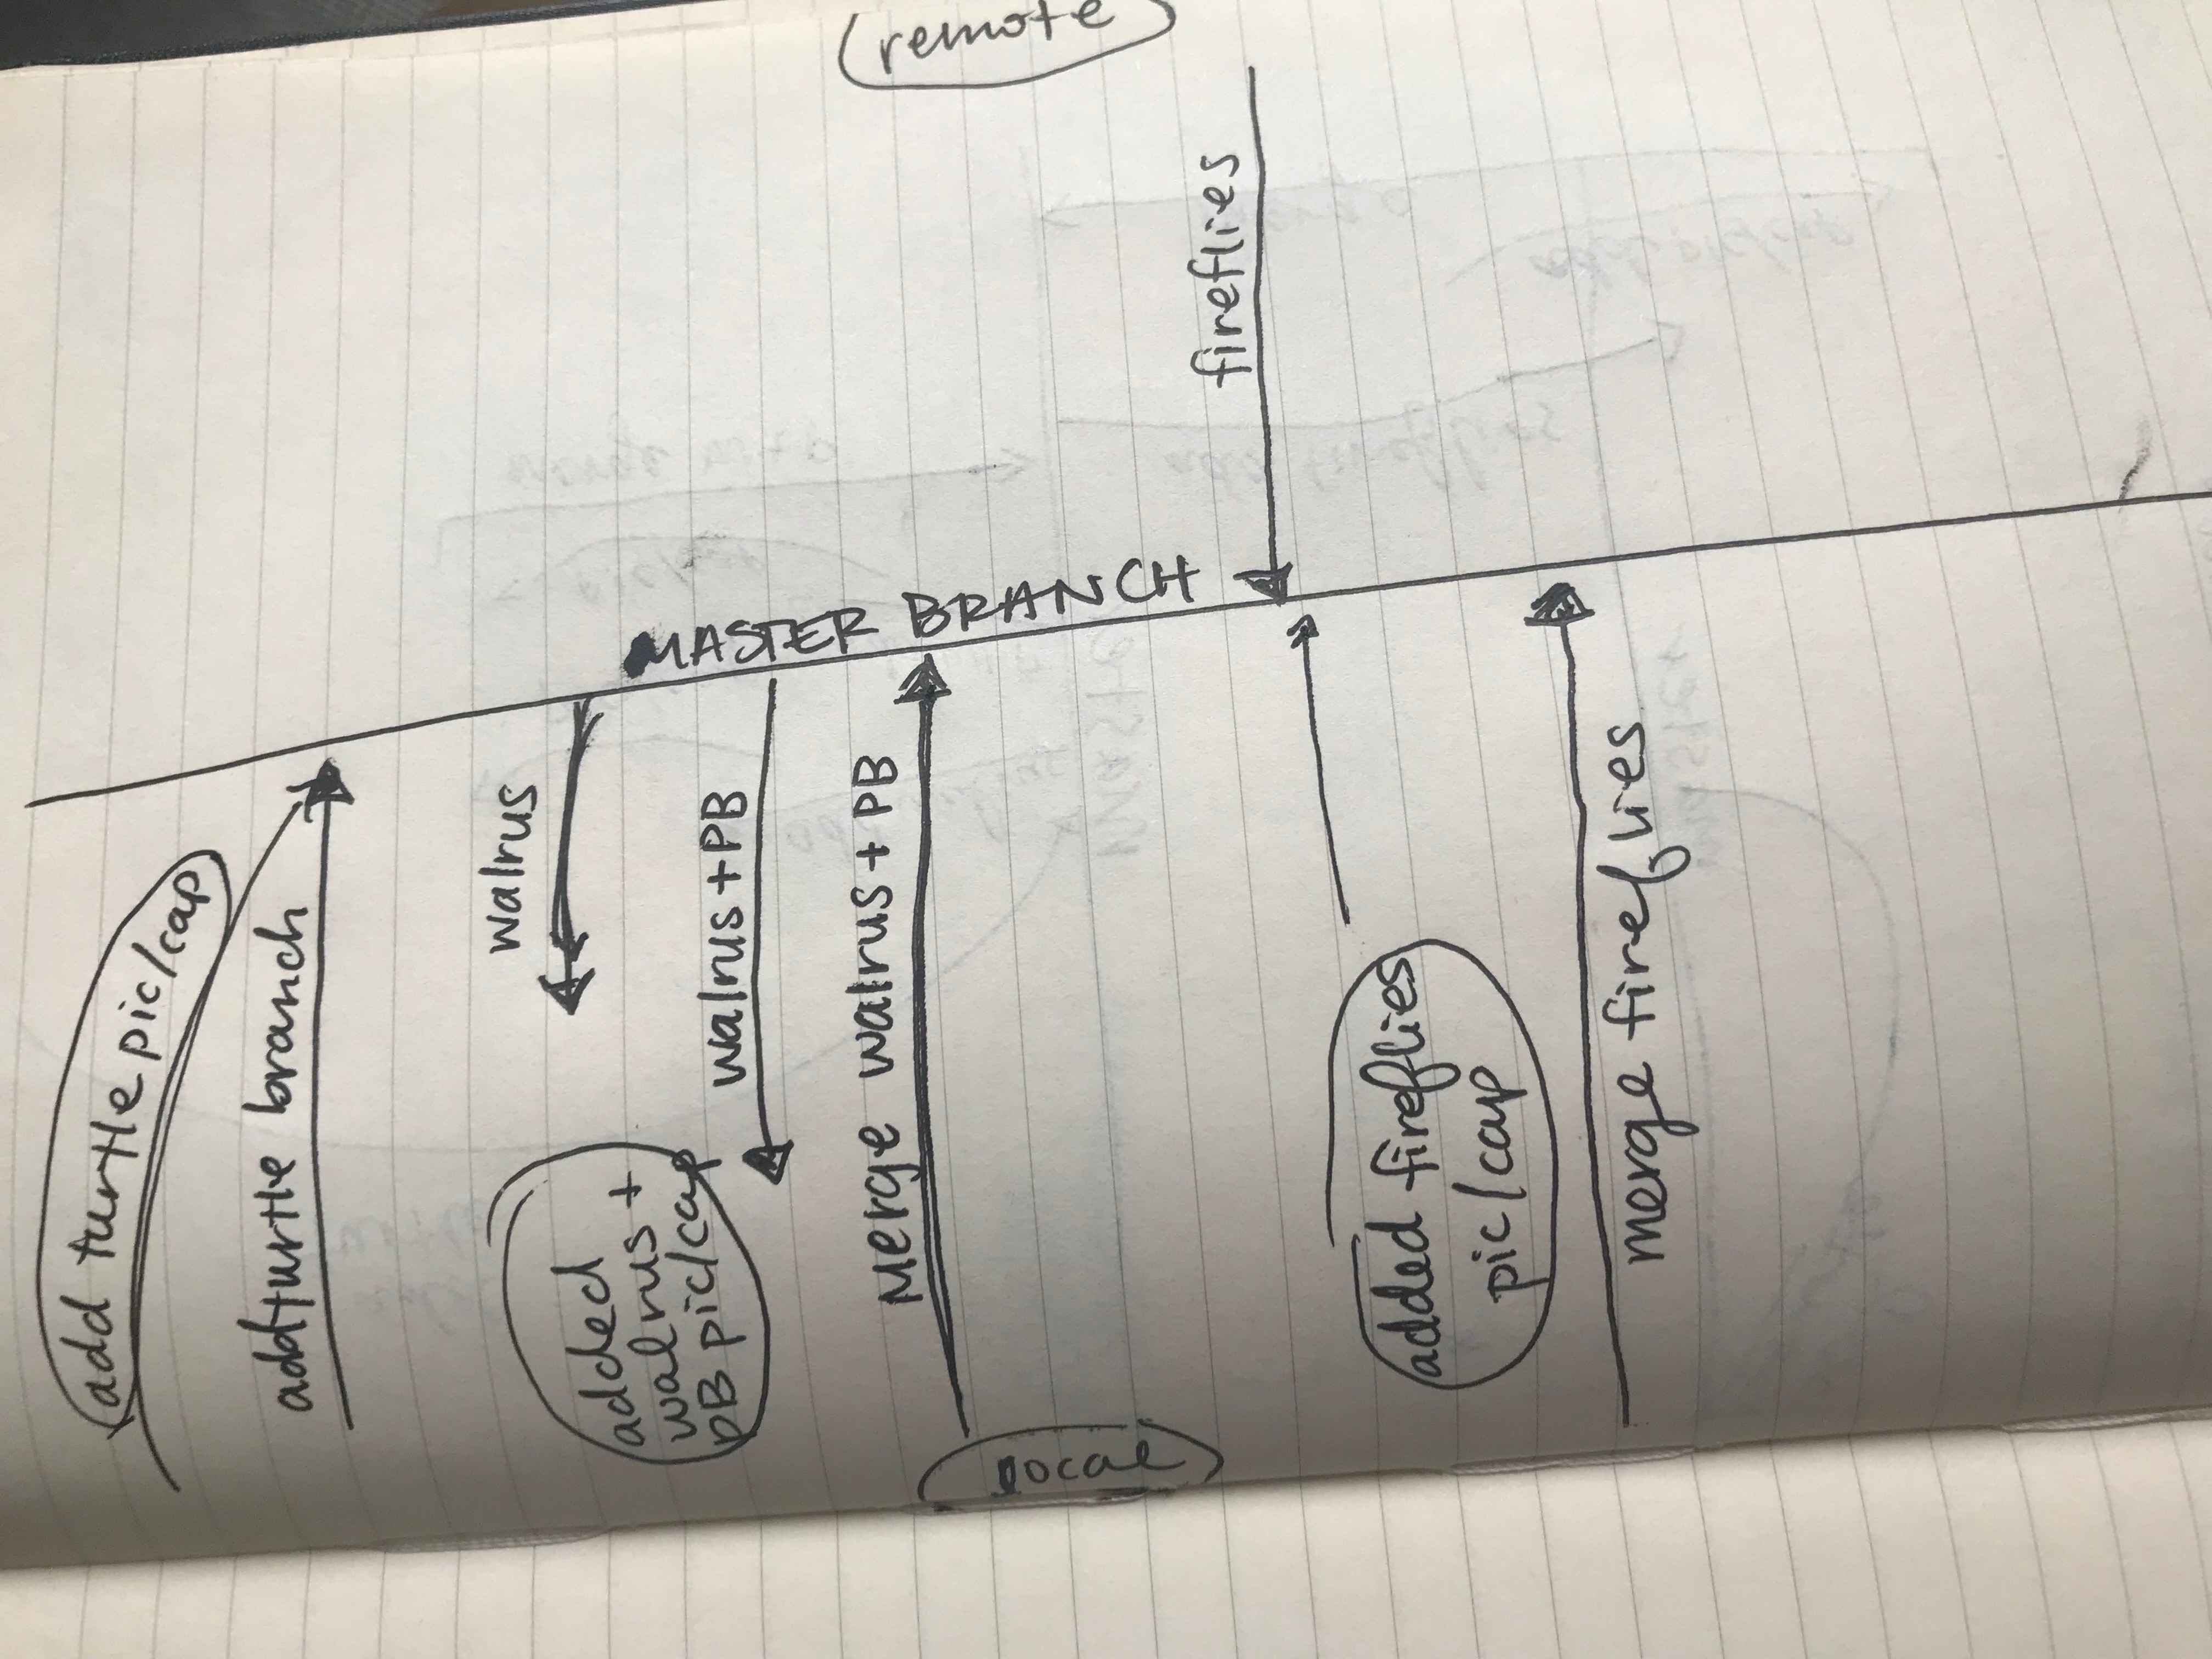 add turtle pic/cap
addturtle branch
walrus
added
walrus +
pB pic/cap
walrus+PB
Merge walrus + PB
MASTER BRANCH
local
remote
fireflies
added fireflies
pic/cap
merge fireflies